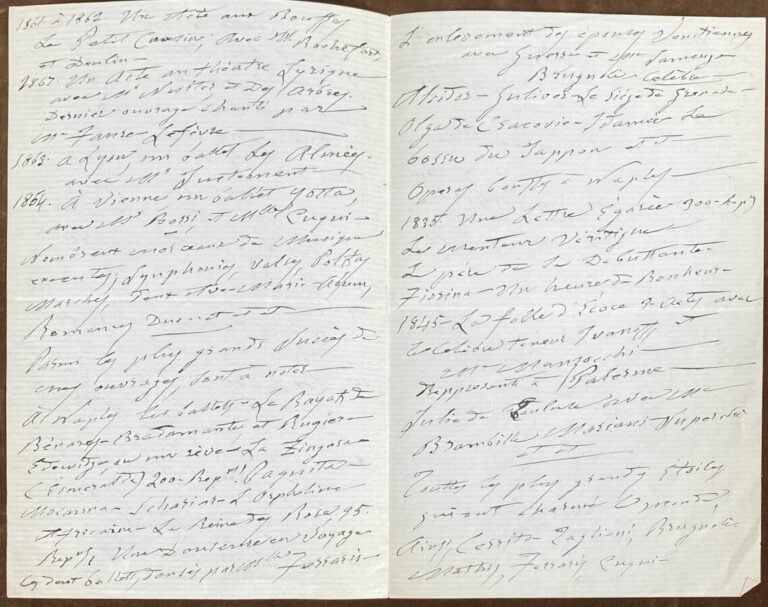 1861 à 1862. Un Acte aux Bouffes
Le Petit Cousin, avec Mr. Rochefort
et Deulin
1862. Un Acte au théâtre Lyrique
avec Mr Nuitter et Des Arbres.
Dernier ouvrage chanté par
Me Faure Lefèvre
1863. A Lyon un ballet Les Almées.
avec Mr Justament
1864. A Vienne un ballet Yotta,
avec Mr Borri, et Mlle Cuqui-
Nombreux morceaux de Musique
executés, Symphonies Valses Polkas
Marches,
Romances Duos. et et et
Parmi les plus grands Succès de
mes ouvrages, sont a noter
A Naples les ballets - Le Rayah de
Bénares - Bradamante et Rugier -
Edwidge ou un rêve - La Zingara -
(Esmeralda) 200 Repns. Paquita -
L'Orpheline
Africaine - La Reine des Roses 95.
Repns, Une Danseuse en Voyage
dansés par Mlle
Ferraris -
L'enlèvement des épouses Venitiennes
avec Guerra et
Brugnoli celèbre -
Alcidor - Gulliver - Le Siège de Grenade -
Olga de Cracovie - La
bossu du Jappon et et
Operas bouffes à Naples
1835. Une Lettre Egarée - 300 Repns
Le menteur Véridique
Le père de la Debuttante -
Fiorina - Un heure de Bonheur -
1845 - La folle d'Ecosse 3 Actes avec
le celèbre teneur Ivanoff et
Me Manzocchi
Réppresenté à Palerme
Julie de Toulouse avec Me
Brambilla Mariani Superchi
et et
Touttes les plus grandes étoiles
qui ont charmé
Ainsi Cerrito - Taglioni, Brugnoli,
Mathis, Ferraris, Cuqui -